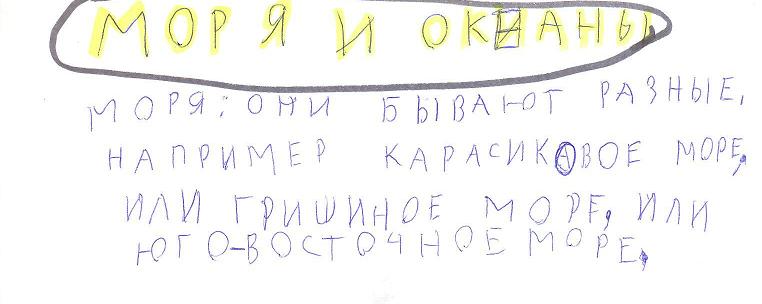 МОРЯ И ОКЕАНЫ
МОРЯ: ОНИ БЫВАЮТ РАЗНЫЕ,
НАПРИМЕР КАРАСИКАВОЕ МОРЕ,
ИЛИ ГРИШИНОЕ МОРЕ, ИЛИ
ЮГО-ВОСТОЧНОЕ МОРЕ,